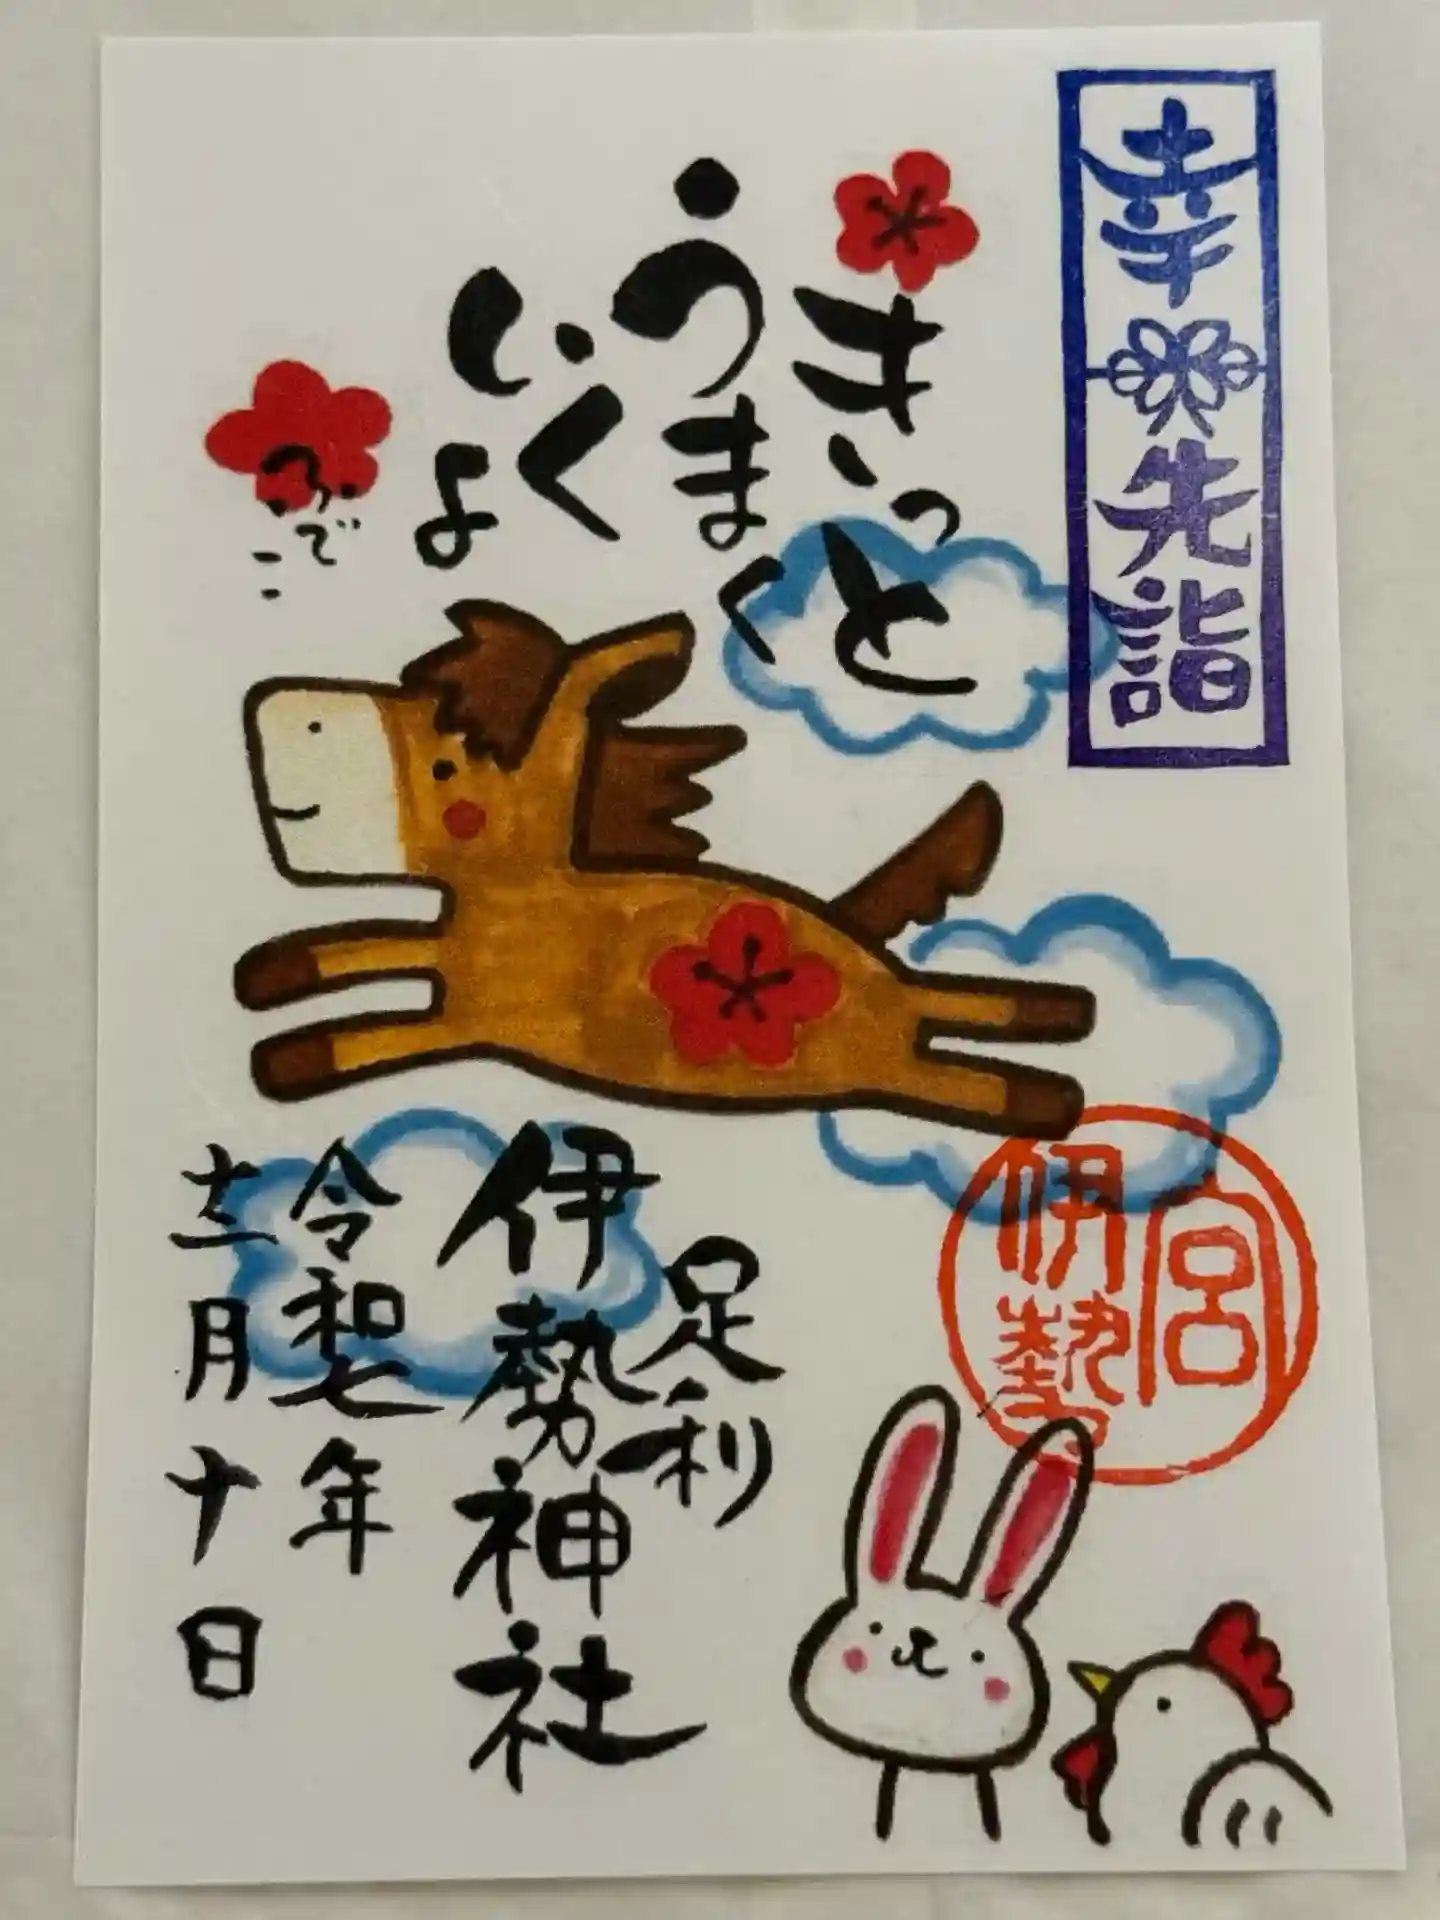 幸先詣
きっと
うまく
いくよ
ふでこ
宮
伊勢
足利
伊勢神社
令和七年
十二月十日